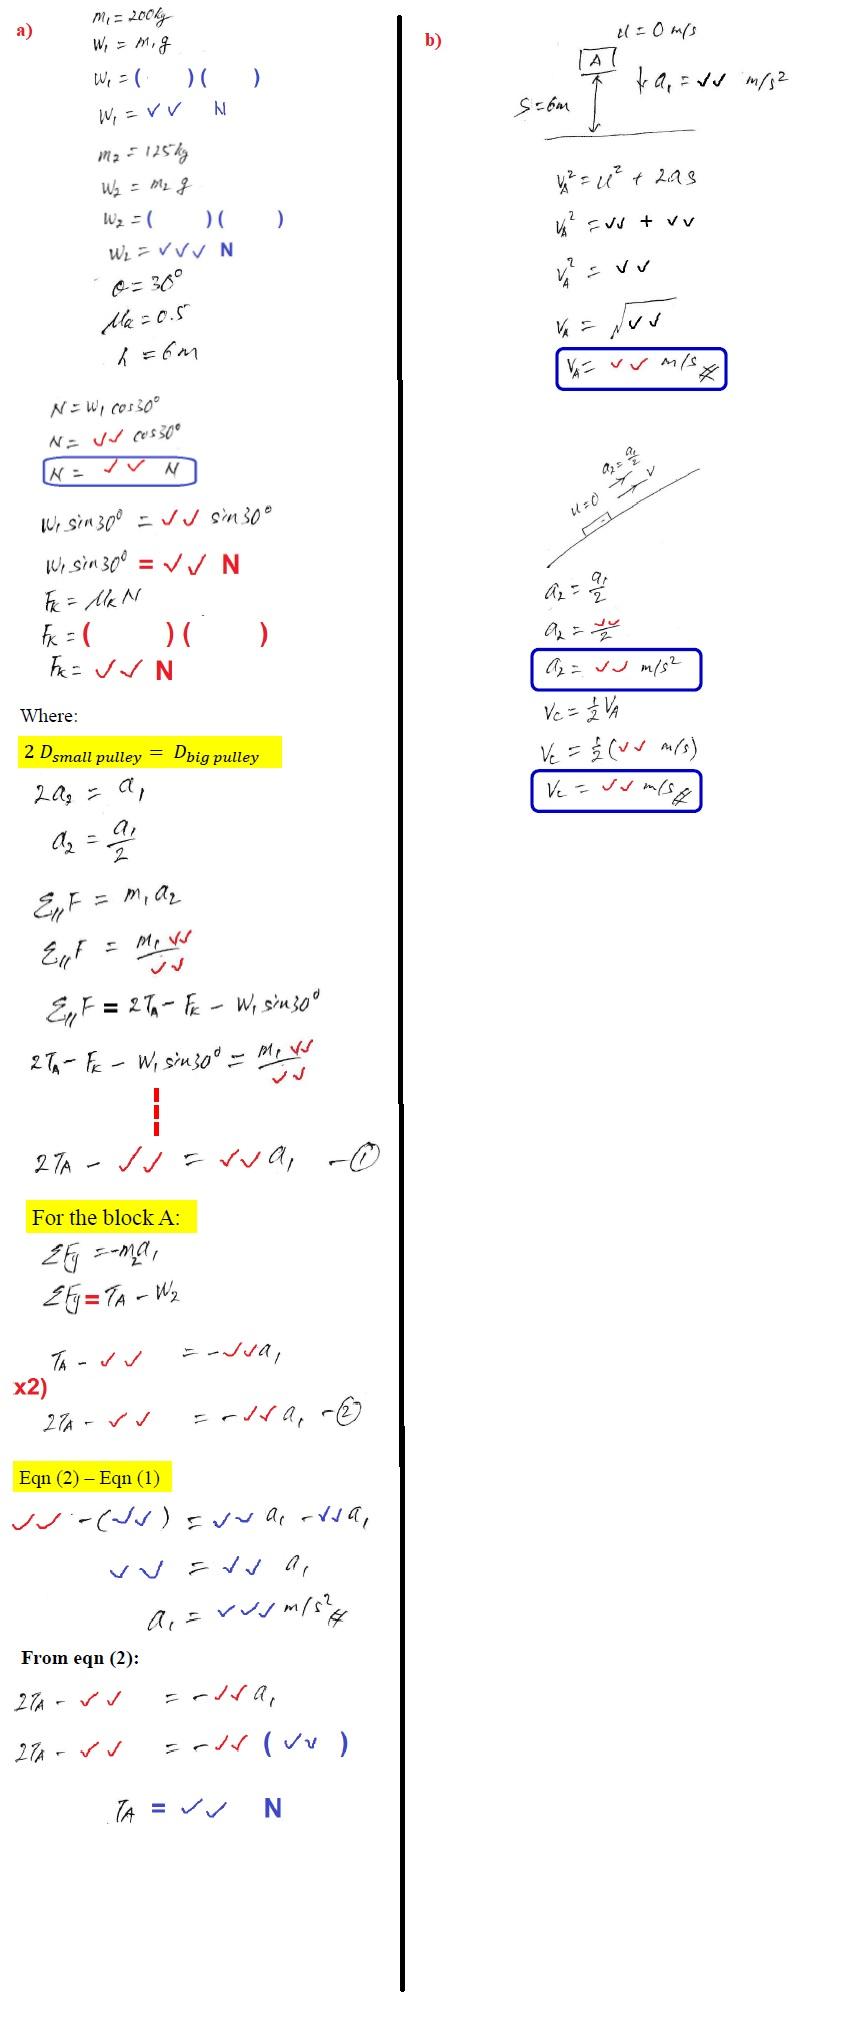 a)
m₁ = 200kg
W₁ = m₁g
W₁ = ( )( )
W₁ = ✓✓ N
m₂ = 125kg
W₂ = m₂ g
W₂ = ( )( )
W₂ = ✓✓✓ N
θ = 30°
μₖ = 0.5
h = 6m
N = W₁ cos30°
N = ✓✓ cos30°
N = ✓✓ N
W₁ sin30° = ✓✓ sin30°
W₁ sin30° = ✓✓ N
Fₖ = μₖ N
Fₖ = ( )( )
Fₖ = ✓✓ N
Where:
2 D_small pulley = D_big pulley
2a₂ = a₁
a₂ = a₁/2
Σ//F = m₁a₂
Σ//F = m₁ ✓✓/✓✓
Σ//F = 2T_A − Fₖ − W₁ sin30°
2T_A − Fₖ − W₁ sin30° = m₁ ✓✓/✓✓
2T_A − ✓✓ = ✓✓ a₁ −①
For the block A:
ΣFy = −m₂a₁
ΣFy = T_A − W₂
T_A − ✓✓ = −✓✓a₁
x2)
2T_A − ✓✓ = −✓✓ a₁ −②
Eqn (2) – Eqn (1)
✓✓ −(✓✓) = ✓✓ a₁ −✓✓a₁
✓✓ = ✓✓ a₁
a₁ = ✓✓✓ m/s²
From eqn (2):
2T_A − ✓✓ = −✓✓ a₁
2T_A − ✓✓ = −✓✓ (✓✓)
T_A = ✓✓ N
b)
u = 0 m/s
A
a₁ = ✓✓ m/s²
S = 6m
V_A² = u² + 2as
V_A² = ✓✓ + ✓✓
V_A² = ✓✓
V_A = √✓✓
V_A = ✓✓ m/s
a₂ = a₁/2
V
u = 0
a₂ = a₁/2
a₂ = ✓✓/2
a₂ = ✓✓ m/s²
V_C = ½ V_A
V_C = ½ (✓✓ m/s)
V_C = ✓✓ m/s